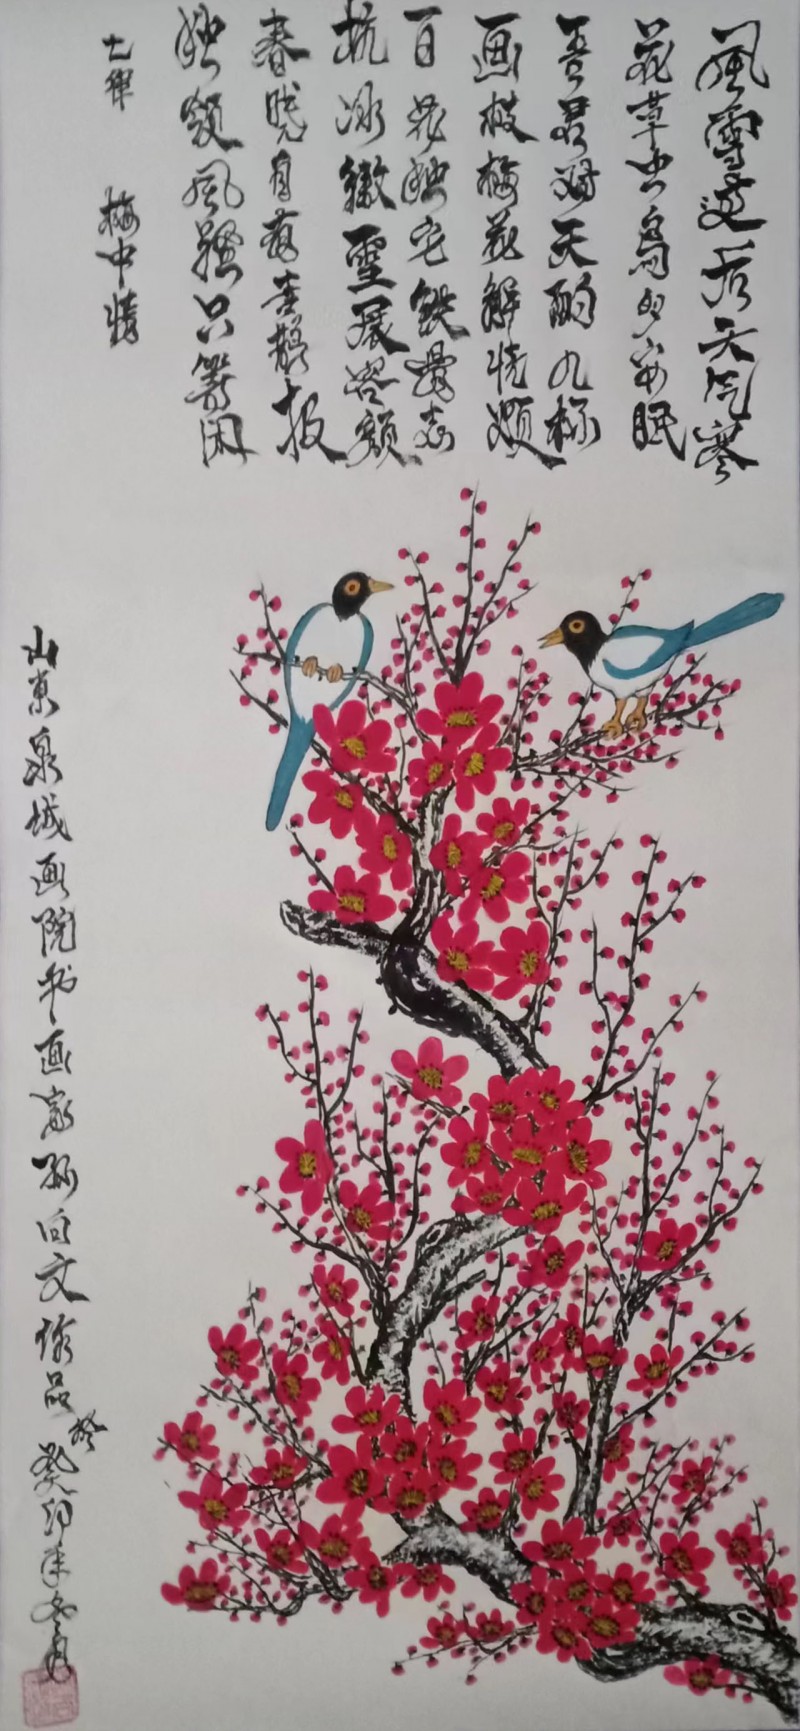 風雪过后天气寒
花草虫鳥安眠
吾君对天酌九杯
画枝梅花解忧烦
百花独它铁骨志
抗冰傲雪展容颜
春晓自有喜鹊报
独领風骚只等闲
七律 梅中情
山东泉城画院书画家孙向文作品 癸卯年冬月